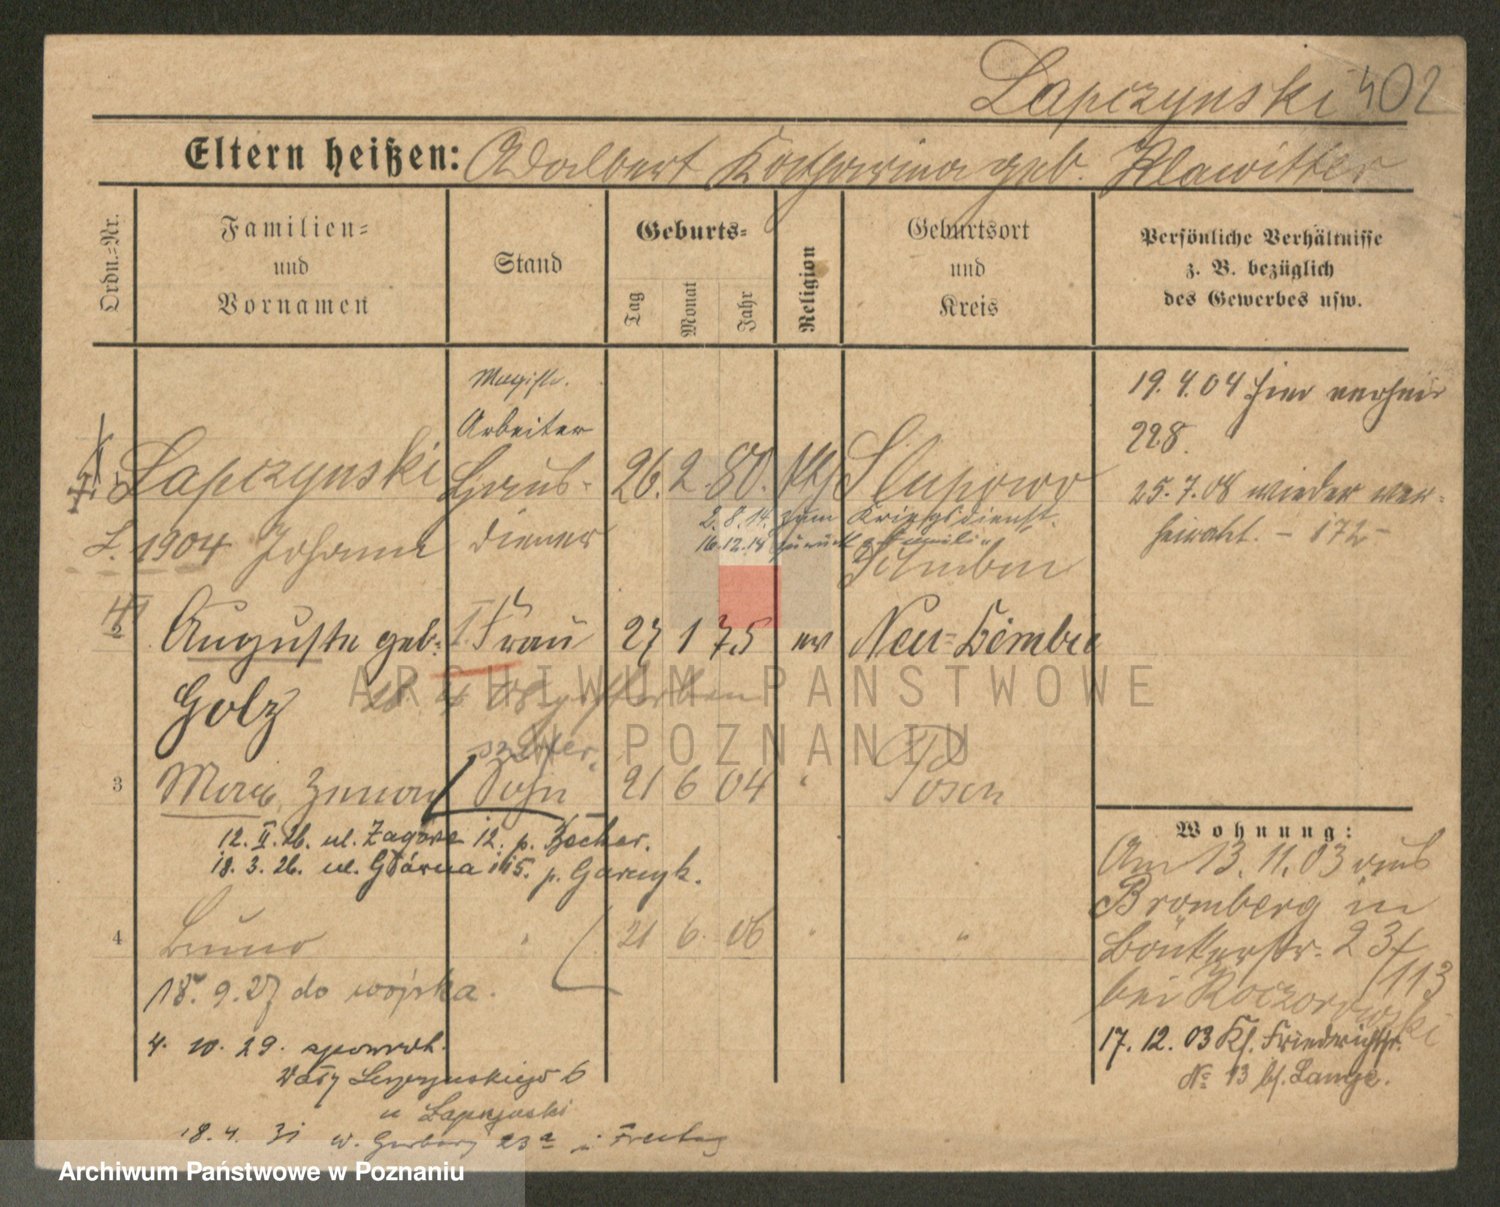 Lapczynski 402
Eltern heißen: Adalbert Katharina geb. Klawitter
Ordn.-Nr.
Familien-
und
Vornamen
Stand
Geburts-
Tag
Monat
Jahr
Religion
Geburtsort
und
Kreis
Persönliche Verhältnisse
z. B. bezüglich
des Gewerbes usw.
Magistr.
Arbeiter
19. 4. 04 hier verheir
228.
Lapczynski Haus- 26. 2. 80. Slupowo
25. 7. 08 wieder ver-
2. 8. 14. zum Kriegsdienst.
heiratht. - 172 -
1904 Johann diener
16.12.18 zurück
Schubin
2 Auguste geb: I. Frau 27 1 75 ev Neu-
Golz 4 08 gestorben
ARCHIWUM PAŃSTWOWE
W POZNANIU
3 Max Zenon Sohn 21 6 04 " Posen
12. II. 26. ul. Zagórze 12. p. Becker.
18. 3. 26. ul. Górna 15. p.
Wohnung:
Am 13. 11. 03 aus
Bromberg in
4 Bruno " 21 6. 06 " "
23/
bei
113
18. 9. 27 do wojska.
17. 12. 03 Kl. Friedrichstr.
4. 10. 29. spowrot.
No 13 bei Lange.
Wały Leszczyńskiego 6
u Lapczynski
18. 4. 31 w. Garbary 23a Freitag
Archiwum Państwowe w Poznaniu